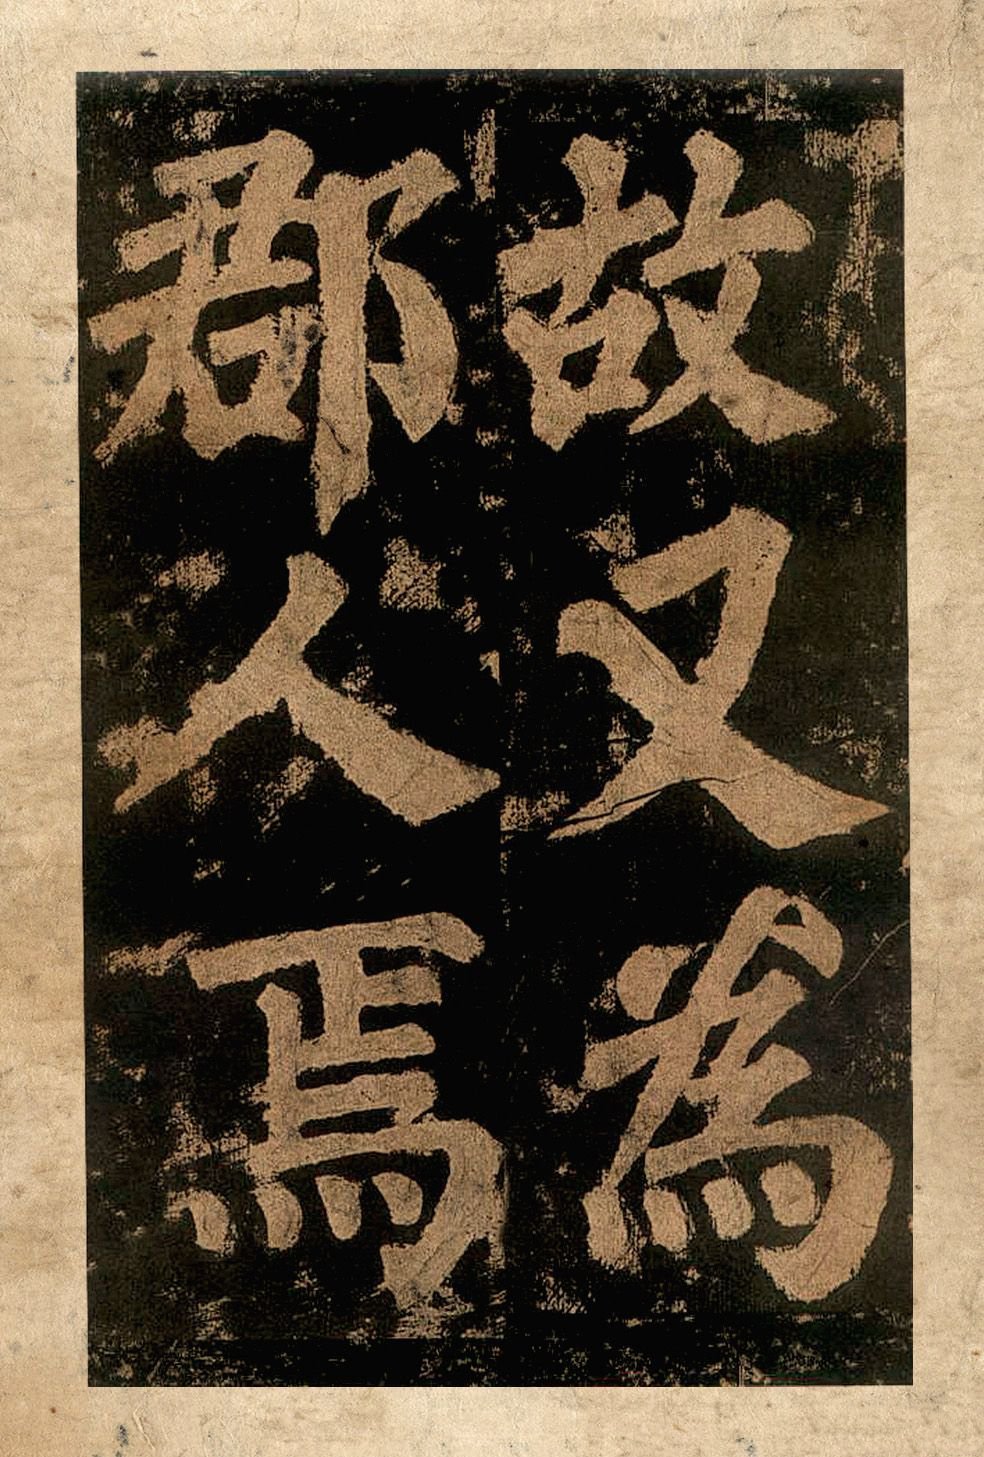 故又爲
郡人焉